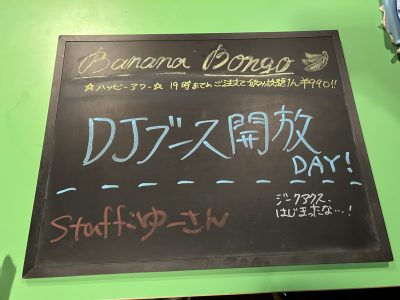 Banana Bongo
☆ハッピーアワー☆ 19時までのご注文で飲み放題1h ¥990!!
DJブース開放
DAY!
Staff:ゆーさん
ジークアクス、
はじまったな…!